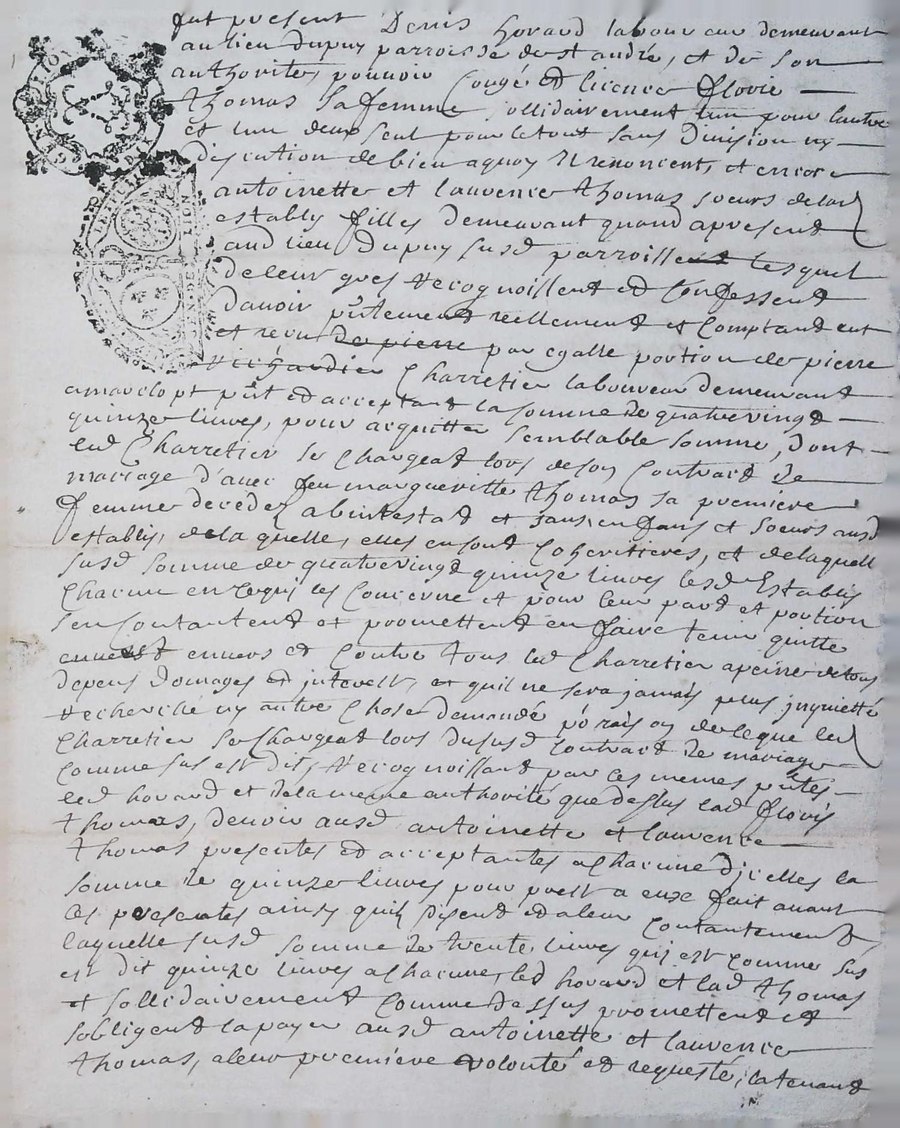 fut present Denis hovard laboureur demeurant
au lieu dupuy parroisse de st andré, et de son
authorite, pouvoir Congé et licence flovie
thomas sa femme sollidairement lun pour lautre
et lun deux seul pour le tout sans division ny
discution de bien a quoy Ilz renoncent, et encore
antoinette et lauvence thomas soeurs de lad
establis filles demeurant quand a present
aud lieu Dupuy susd parroisse lesquel
de leur gres recognoissent et Confessent
davoir pntement reellement et Comptand eut
et receu de pierre par egalle portion de pierre
Charretier laboureur demeurant
a marclopt pnt et acceptant la somme de quatrevingt
quinze livres, pour acquitter semblable somme, dont
led Charretier se Chargeat lors de son Contract de
mariage d'avec feu margueritte thomas sa premiere
femme decedez abintestat et sans enfans et soeurs ausd
establis, de la quelle, elles en sont Coheritieres, et de laquelle
susd somme de quatrevingt quinze livres lesd Establis
Chacun en ce qui les Concerne et pour leur part et portion
sen Contantent et promettent en faire tenir quitte
envers et Contre tous led Charretier a peine de tous
depens domages et interest, et quil ne sera jamais plus inquietté
recherché ny autre Chose demandé p raison de ce que led
Charretier se Chargeat lors du susd Contract de mariage
comme sus est dit, recognoissant par ces memes pntes
led hovard et de la meme authorité que dessus lad flovie
thomas, devoir ausd antoinette et lauvence
thomas presentes et acceptantes a Chacune d'icelles la
somme de quinze livres pour prest a eux fait avant
ces presentes ainsy quilz disent et a leur Contantement,
laquelle susd somme de trente livres qui est comme sus
est dit quinze livres a Chacune, led hovard et lad thomas
et sollidairement Comme dessus promettent et
sobligent la payer ausd antoinette et lauvence
thomas, a leur premiere volonté et requeste, la tenant